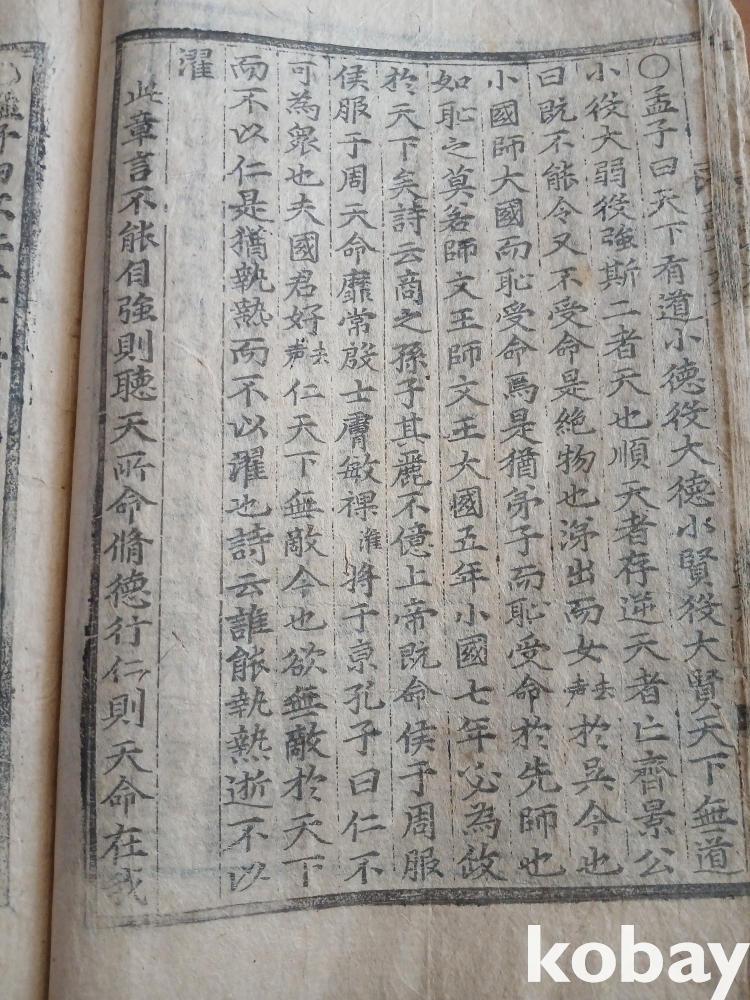 ○孟子曰天下有道小德役大德小賢役大賢天下無道
小役大弱役強斯二者天也順天者存逆天者亡齊景公
曰旣不能令又不受命是絶物也涕出而女去声於吳今也
小國師大國而恥受命焉是猶弟子而恥受命於先師也
如恥之莫若師文王師文王大國五年小國七年必為政
於天下矣詩云商之孫子其麗不億上帝旣命侯于周服
侯服于周天命靡常殷士膚敏祼將于京孔子曰仁不
可為衆也夫國君好去声仁天下無敵今也欲無敵於天下
而不以仁是猶執熱而不以濯也詩云誰能執熱逝不以
濯
此章言不能自強則聽天所命脩德行仁則天命在我
kobay